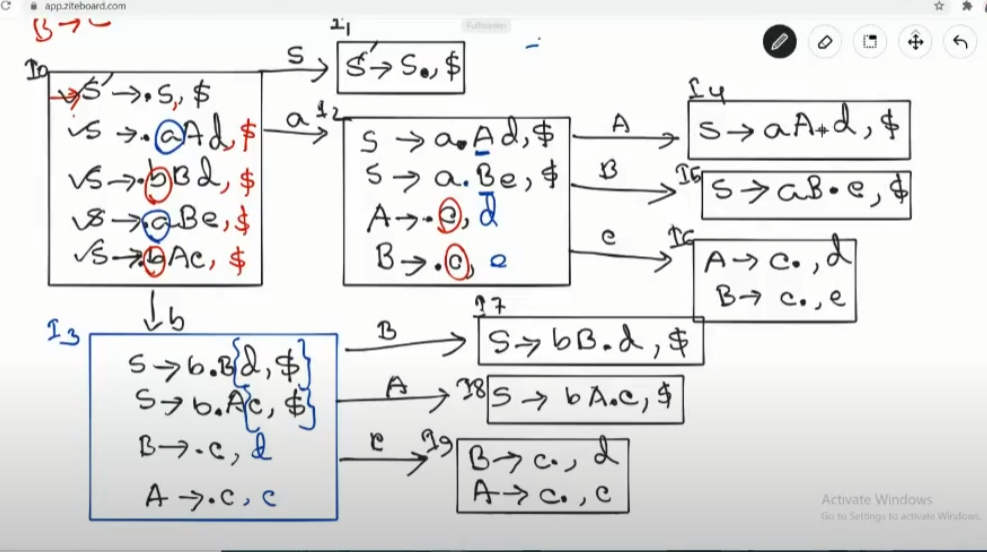 app.ziteboard.com
Fullscreen
B → c
I0
S' → .S, $
S → .aAd, $
S → .bBd, $
S → .aBe, $
S → .bAc, $
S
I1
S' → S., $
a
I2
S → a.Ad, $
S → a.Be, $
A → .c, d
B → .c, e
A
I4
S → aA.d, $
B
I5
S → aB.e, $
c
I6
A → c., d
B → c., e
b
I3
S → b.B{d, $}
S → b.A{c, $}
B → .c, d
A → .c, c
B
I7
S → bB.d, $
A
I8
S → bA.c, $
c
I9
B → c., d
A → c., c
Activate Windows
Go to Settings to activate Windows.